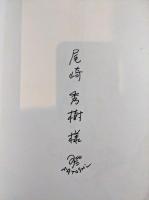 尾崎秀樹様